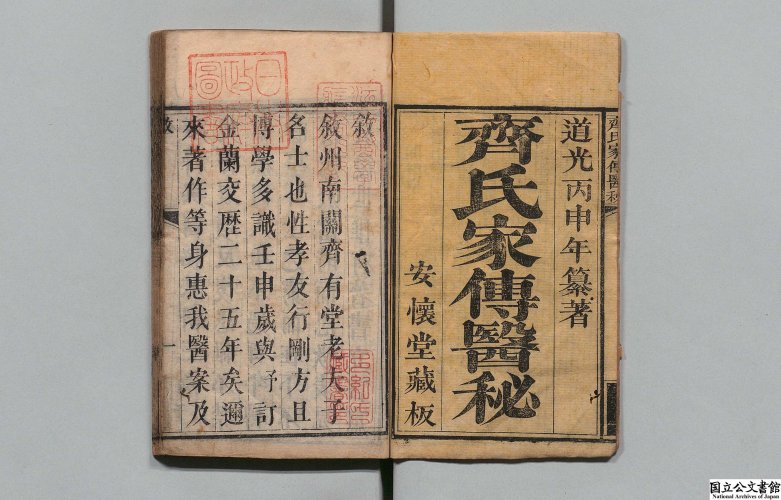 齊氏家傳醫秘
道光丙申年纂著
齊氏家傳醫秘
安懷堂藏板
敘
敘州南關齊有堂老夫子
名士也性孝友行剛方且
博學多識壬申歲與予訂
金蘭交歷二十五年矣邇
來著作等身惠我醫案及
敘
一
国立公文書館
National Archives of Japan